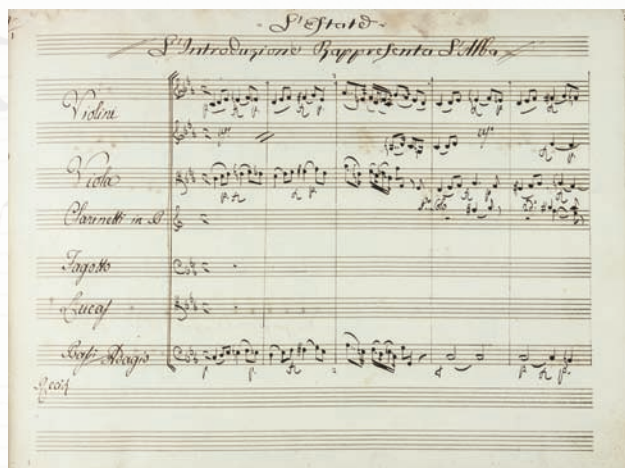 L'Estate
L'Introduzione Rappresenta L'Alba
Violini
Viola
Clarinetti in B
Fagotto
Lucas
Bassi Adagio